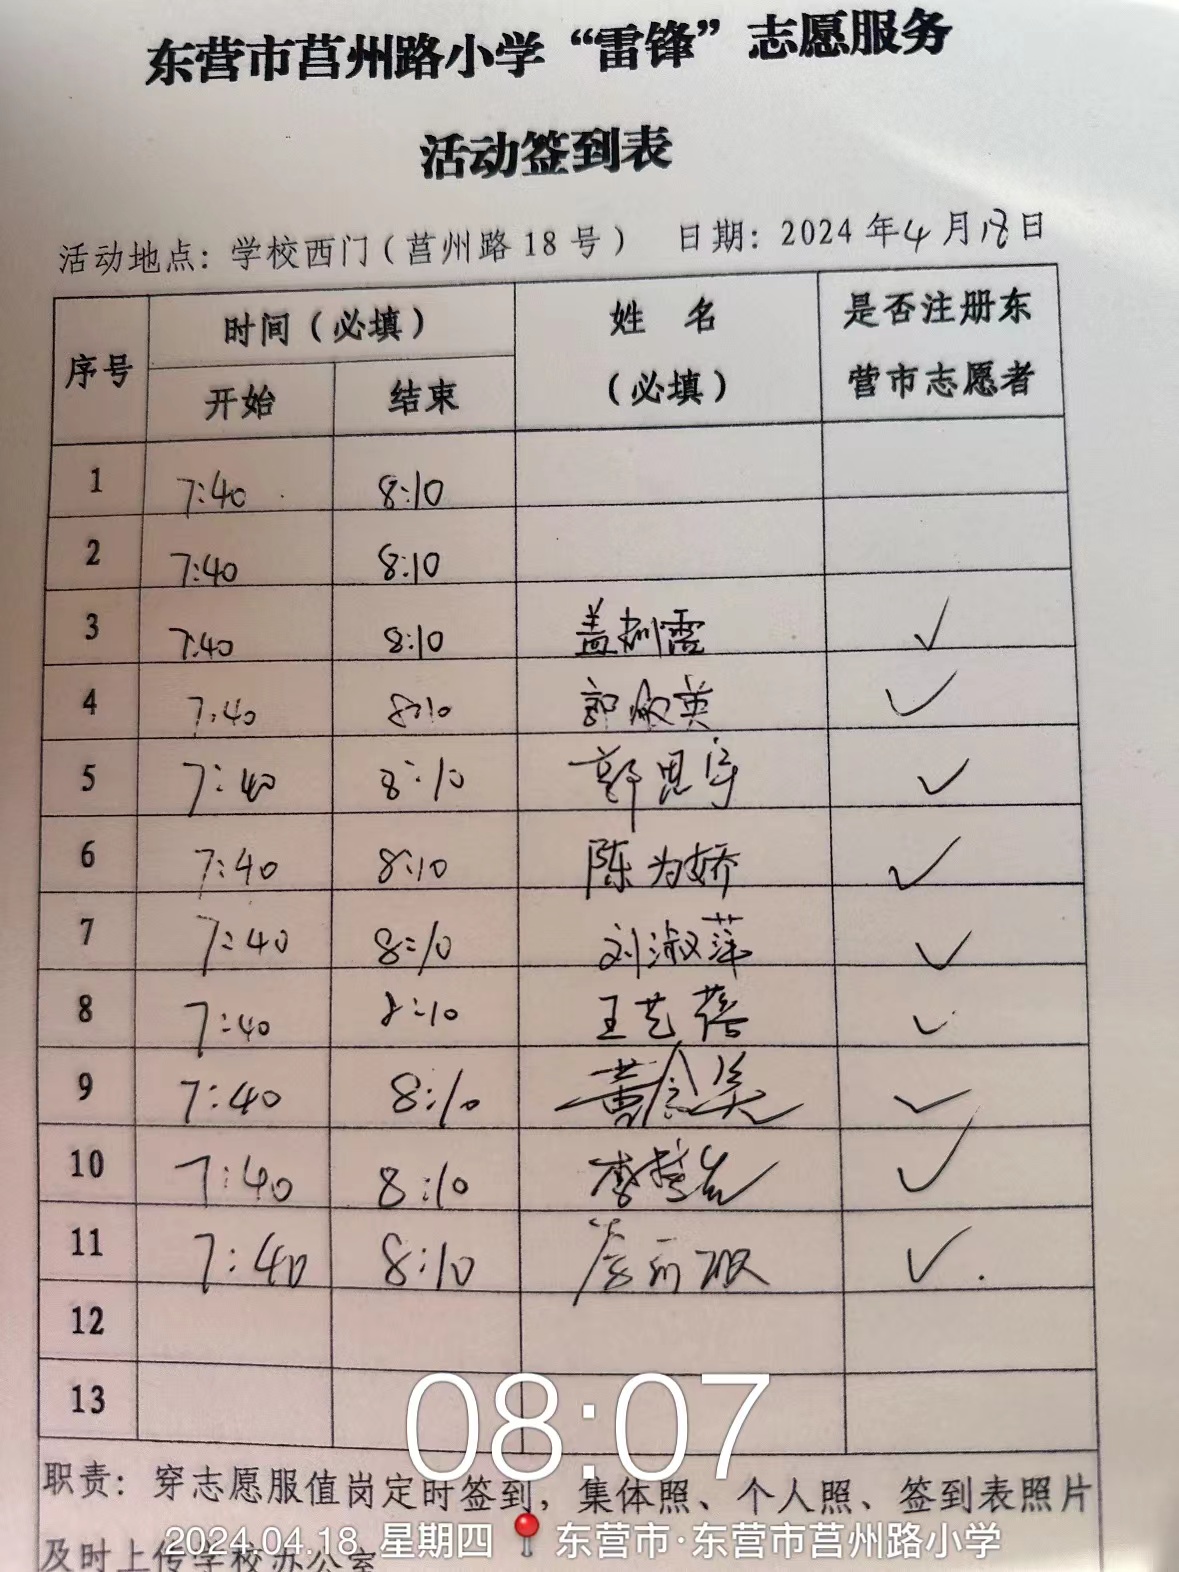 东营市莒州路小学“雷锋”志愿服务
活动签到表
活动地点：学校西门（莒州路 18 号） 日期：2024 年 4 月 18 日
序号 时间（必填） 姓 名（必填） 是否注册东营市志愿者
开始 结束
1 7:40 8:10
2 7:40 8:10
3 7:40 8:10 ✓
4 7:40 8:10 郭敏英 ✓
5 7:40 8:10 郭思宇 ✓
6 7:40 8:10 陈为娇 ✓
7 7:40 8:10 刘淑萍 ✓
8 7:40 8:10 王艺蓓 ✓
9 7:40 8:10 ✓
10 7:40 8:10 ✓
11 7:40 8:10 ✓
12
13
08:07
职责：穿志愿服值岗定时签到，集体照、个人照、签到表照片
及时上传学校办公室
2024.04.18 星期四 东营市·东营市莒州路小学